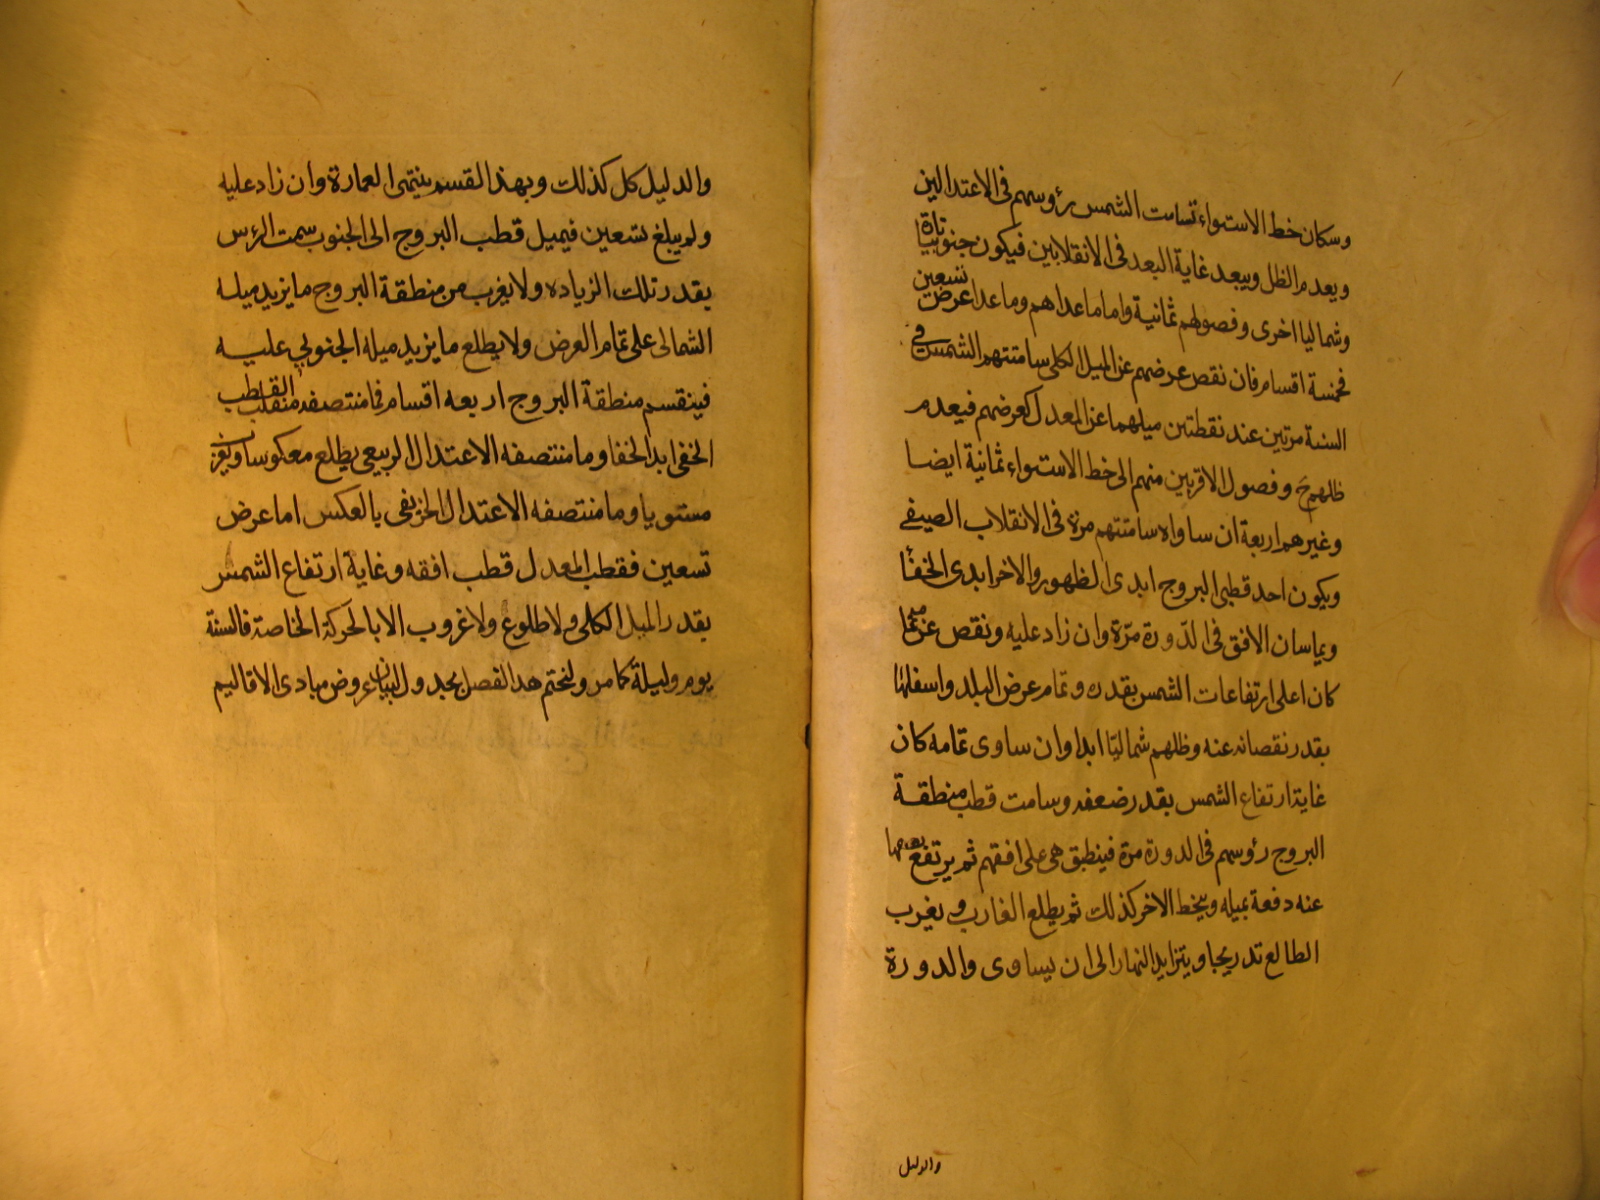 وسكان خط الاستواء تسامت الشمس رؤوسهم في الاعتدالين
ويعدم الظل ويبعد غاية البعد في الانقلابين فيكون جنوبيا تارة
وشماليا اخرى وفصولهم ثمانية واما ماعداهم وماعدا عرض تسعين
فخمسة اقسام فان نقص عرضهم عن الميل الكلي سامتتهم الشمس في
السنة مرتين عند نقطتين ميلهما عن المعدل كعرضهم فيعدم
ظلهم ح وفصول الاقربين منهم الى خط الاستواء ثمانية ايضا
وغيرهم اربعة ان ساواه سامتتهم مرة في الانقلاب الصيفي
ويكون احد قطبي البروج ابدي الظهور والاخر ابدي الخفأ
ويماسان الافق في الدورة مرّة وان زاد عليه ونقص عن تمامه
كان اعلى ارتفاعات الشمس بقدره وتمام عرض البلد واسفلها
بقدر نقصانه عنه وظلهم شماليّا ابدا وان ساوى تمامه كان
غاية ارتفاع الشمس بقدر ضعفه وسامت قطب منطقة
البروج رؤوسهم في الدورة مرة فينطبق هي على افقهم ثم يرتفع نصفها
عنه دفعة بميله وينحط الاخر كذلك ثم يطلع الغارب ويغرب
الطالع تدريجا ويتزايد النهار الى ان يساوى والدورة
والدليل
والدليل كل كذلك وبهذا القسم ينتهى العمارة وان زاد عليه
ولم يبلغ تسعين فيميل قطب البروج الى الجنوب سمت الرءس
بقدر تلك الزياده ولا يغرب من منطقة البروج ما يزيد ميله
الشمالى على تمام العرض ولا يطلع ما يزيد ميله الجنوبي عليه
فينقسم منطقة البروج اربعه اقسام فما منتصفه منقلب القطب
الخفي ابدا الخفا وما منتصفه الاعتدال الربيعي يطلع معكوسا ويغرب
مستويا وما منتصفه الاعتدال الخريفى بالعكس اما عرض
تسعين فقطب المعدل قطب افقه وغاية ارتفاع الشمس
بقدر الميل الكلى ولا طلوع ولا غروب الا بالحركة الخاصة فالسنة
يوم وليلة كما مر ولنختم هذا الفصل بجدول لبيان عروض مبادى الاقاليم